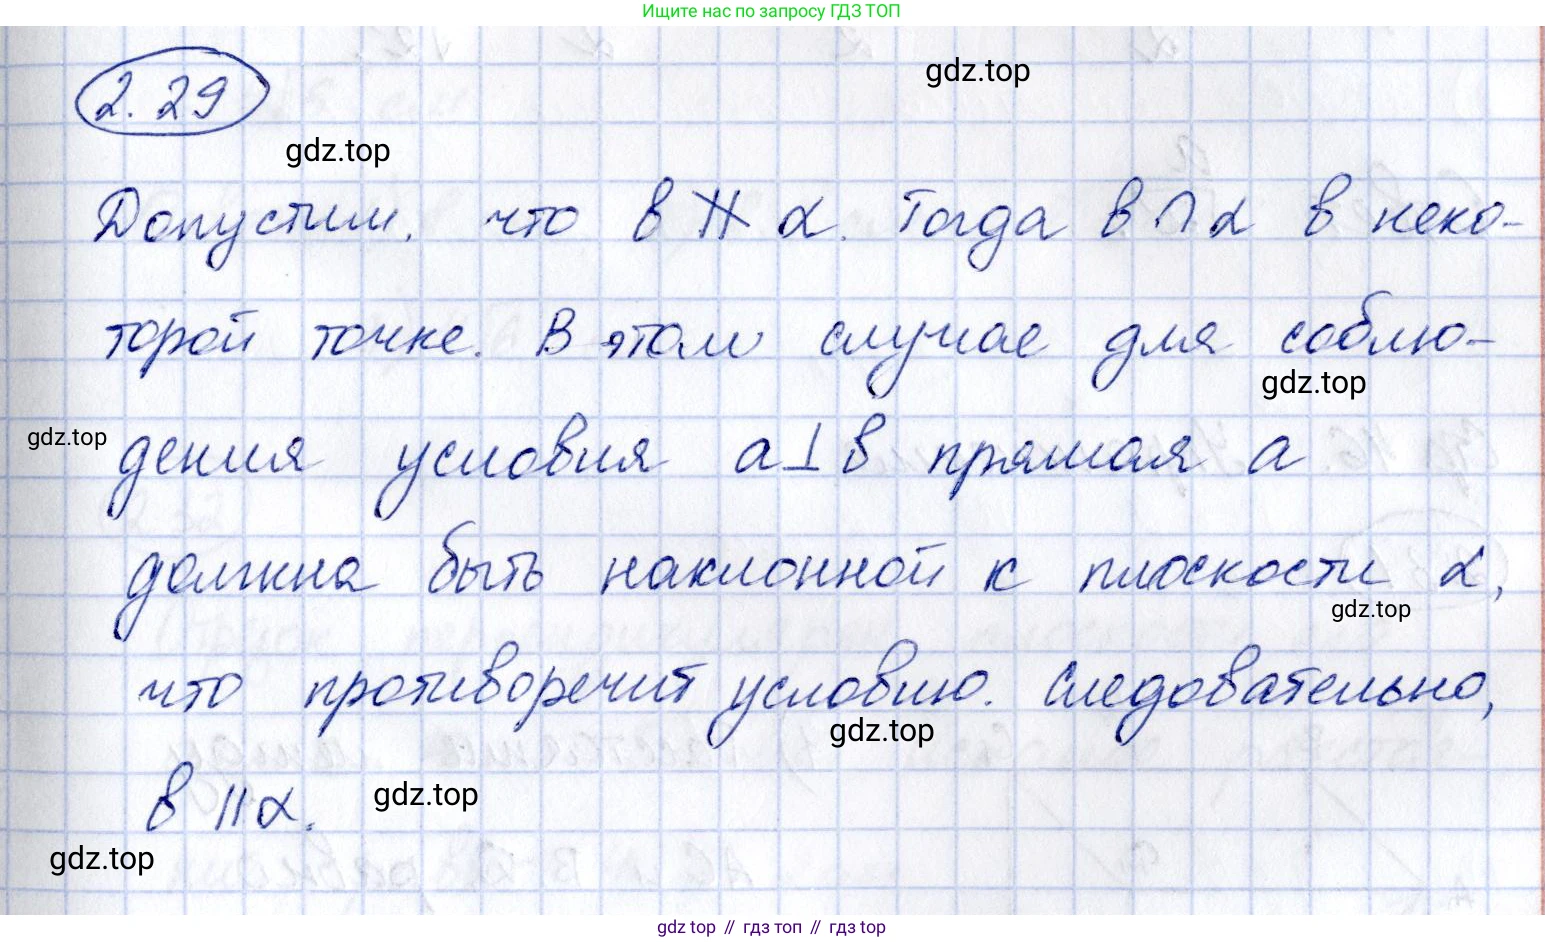 Ищите нас по запросу ГДЗ ТОП
2.29
gdz.top
gdz.top
Допустим, что b ∦ α. Тогда b ∩ α в неко-
торой точке. В этом случае для соблю-
gdz.top
gdz.top
дения условия a ⊥ b прямая a
должна быть наклонной к плоскости α,
gdz.top
что противоречит условию. Следовательно,
gdz.top
b || α.
gdz.top
gdz.top
gdz top // гдз топ // гдз top